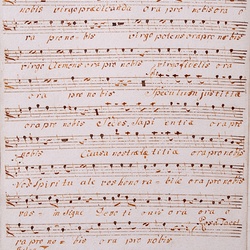 nobis virgo praedicanda ora pro nobis ora
ra pro no bis virgo potens ora pro nobis
virgo Clemens ora pro nobis virgo fidelis ora
ora pro nobis Speculum justitiae
ora pro nobis Sedes Sapientiae ora pro
nobis Causa nostrae laetitiae ora pro nobis
vas Spirituale vas honorabile ora pro no
vas insigne Devotionis ora ora
Rosa
ra pro no bis ora pro nobis